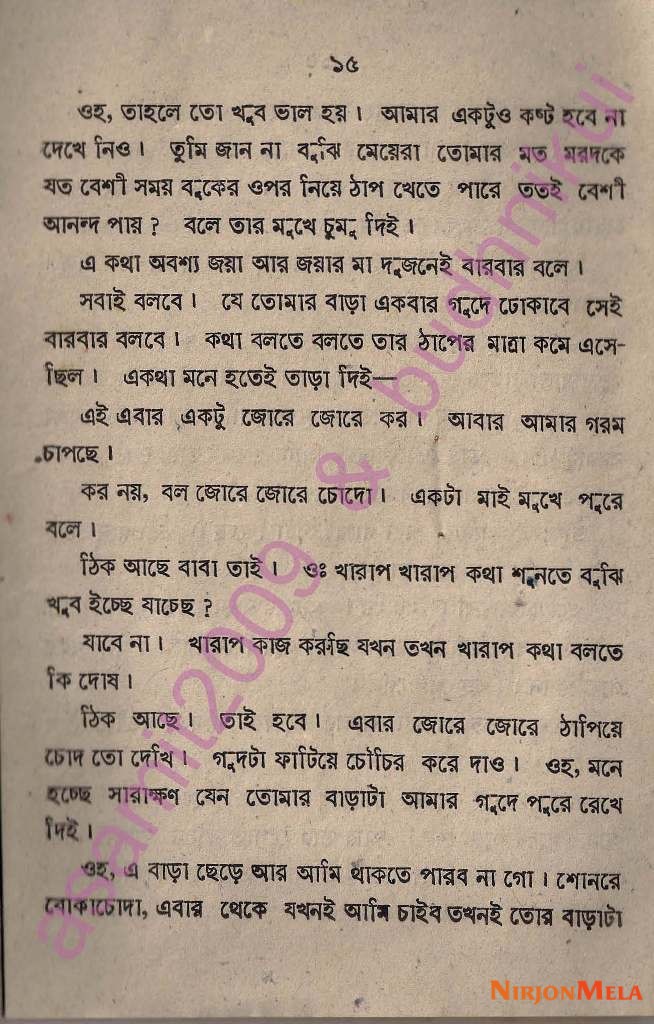 ১৫
ওহ, তাহলে তো খুব ভাল হয়। আমার একটুও কষ্ট হবে না
দেখে নিও। তুমি জান না বুঝি মেয়েরা তোমার মত মরদকে
যত বেশী সময় বুকের ওপর নিয়ে ঠাপ খেতে পারে ততই বেশী
আনন্দ পায়? বলে তার মুখে চুমু দিই।
এ কথা অবশ্য জয়া আর জয়ার মা দুজনেই বারবার বলে।
সবাই বলবে। যে তোমার বাড়া একবার গুদে ঢোকাবে সেই
বারবার বলবে। কথা বলতে বলতে তার ঠাপের মাত্রা কমে এসে-
ছিল। একথা মনে হতেই তাড়া দিই—
এই এবার একটু জোরে জোরে কর। আবার আমার গরম
চাপছে।
কর নয়, বল জোরে জোরে চোদো। একটা মাই মুখে পুরে
বলে।
ঠিক আছে বাবা তাই। ওঃ খারাপ খারাপ কথা শুনতে বুঝি
খুব ইচ্ছে যাচ্ছে?
যাবে না। খারাপ কাজ করছি যখন তখন খারাপ কথা বলতে
কি দোষ।
ঠিক আছে। তাই হবে। এবার জোরে জোরে ঠাপিয়ে
চোদ তো দেখি। গুদটা ফাটিয়ে চৌচির করে দাও। ওহ, মনে
হচ্ছে সারাক্ষণ যেন তোমার বাড়াটা আমার গুদে পুরে রেখে
দিই।
ওহ, এ বাড়া ছেড়ে আর আমি থাকতে পারব না গো। শোনরে
বোকাচোদা, এবার থেকে যখনই আমি চাইব তখনই তোর বাড়াটা
asamit2009 & budhnikui
NIRJONMELA